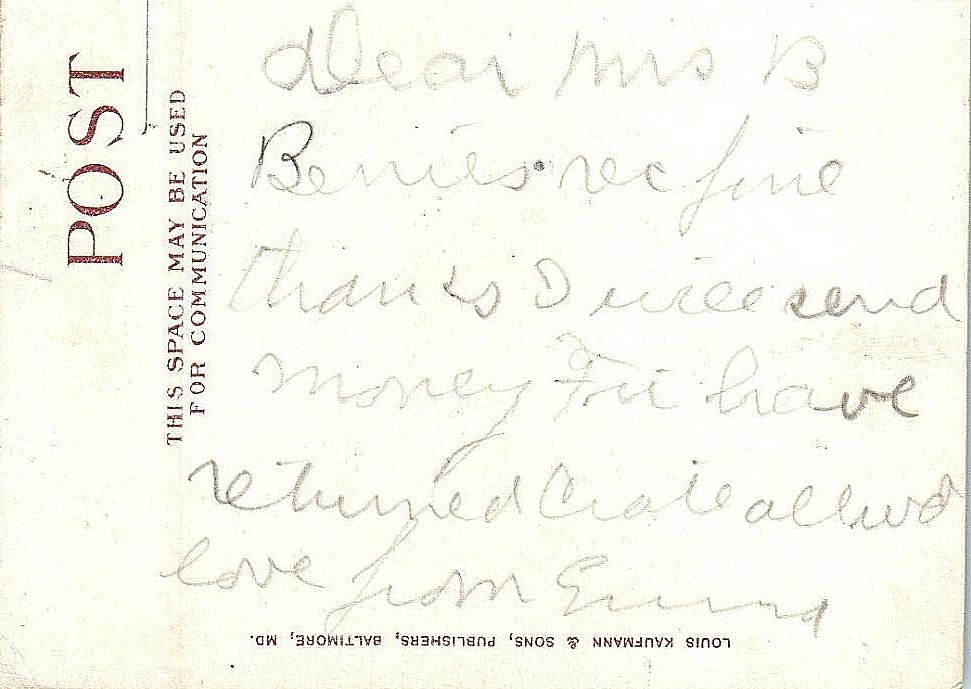 POST
THIS SPACE MAY BE USED
FOR COMMUNICATION
Dear Mrs B
Berries rec fine
thanks I will send
money Fri have
returned Crate all
love from Emma
LOUIS KAUFMANN & SONS, PUBLISHERS, BALTIMORE, MD.